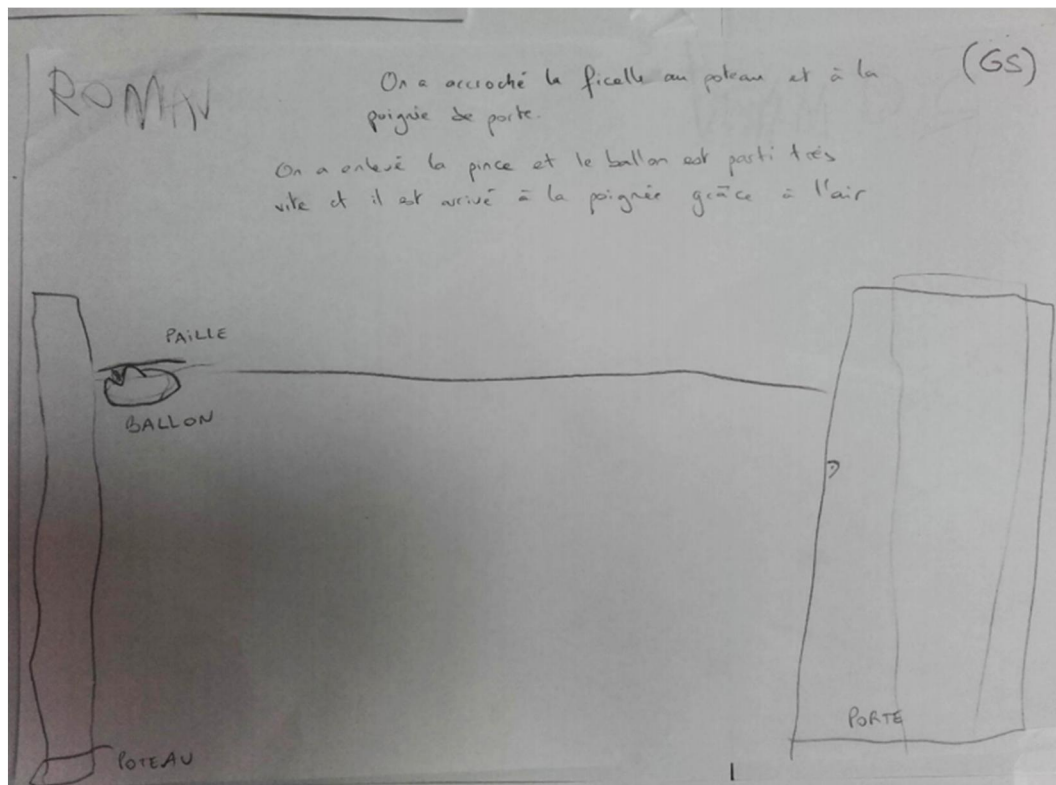 ROMAN
(GS)
On a accroché la ficelle au poteau et à la
poignée de porte.
On a enlevé la pince et le ballon est parti très
vite et il est arrivé à la poignée grâce à l'air
PAILLE
BALLON
PORTE
POTEAU